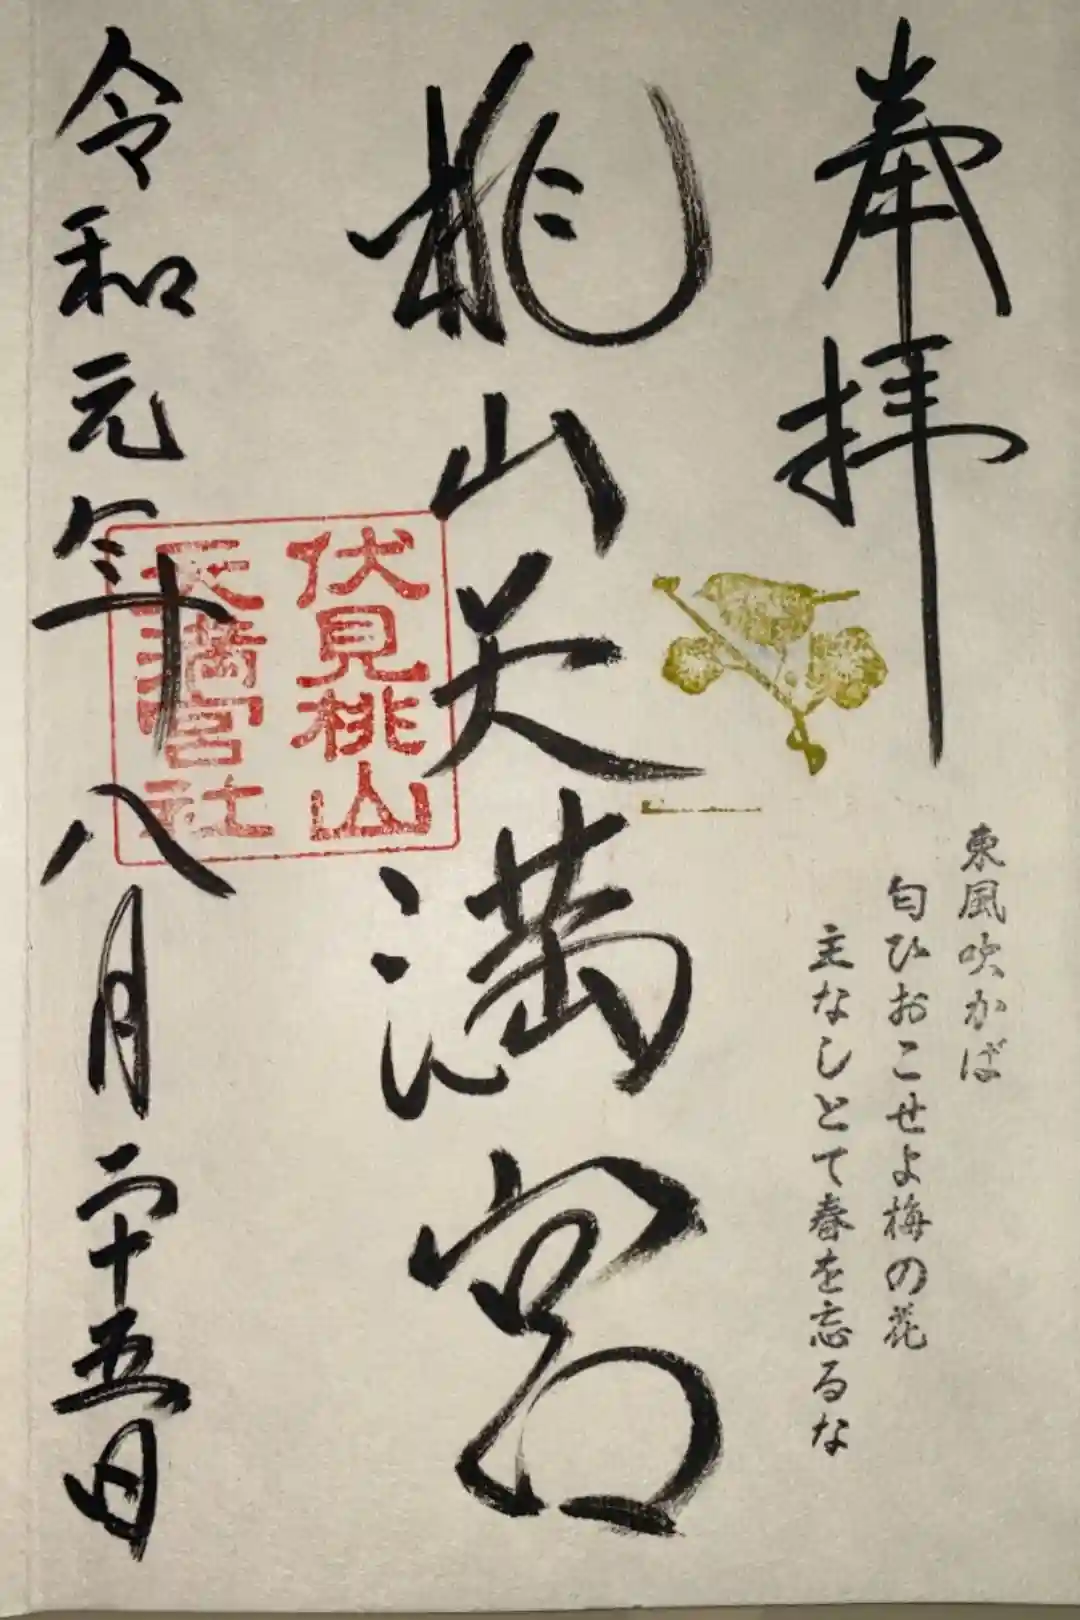 奉拝
東風吹かば
匂ひおこせよ梅の花
主なしとて春を忘るな
桃山天満宮
伏見桃山
天満宮社
令和元年八月二十五日